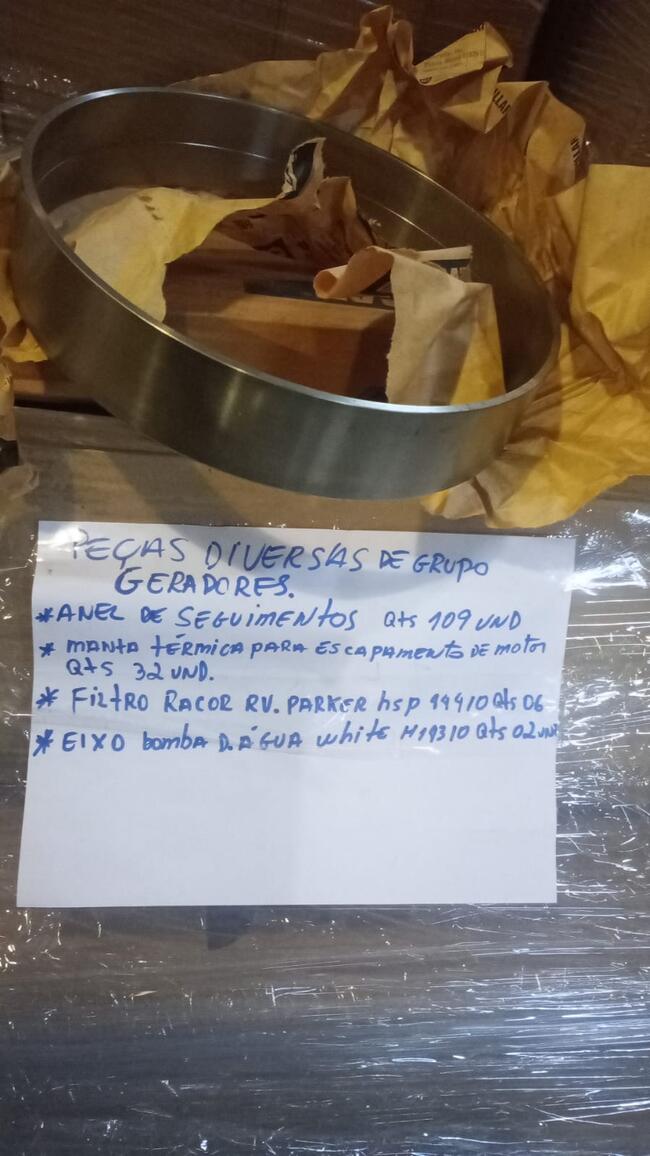 PEÇAS DIVERSAS DE GRUPO
GERADORES.
* ANEL DE SEGUIMENTOS Qts 109 UND
* MANTA TÉRMICA PARA ESCAPAMENTO DE MOTOR
Qts 32 UND.
* FILTRO RACOR RV. PARKER hsp 19910 Qts 06
* EIXO bomba D. ÁGUA White H19310 Qts 02 UND